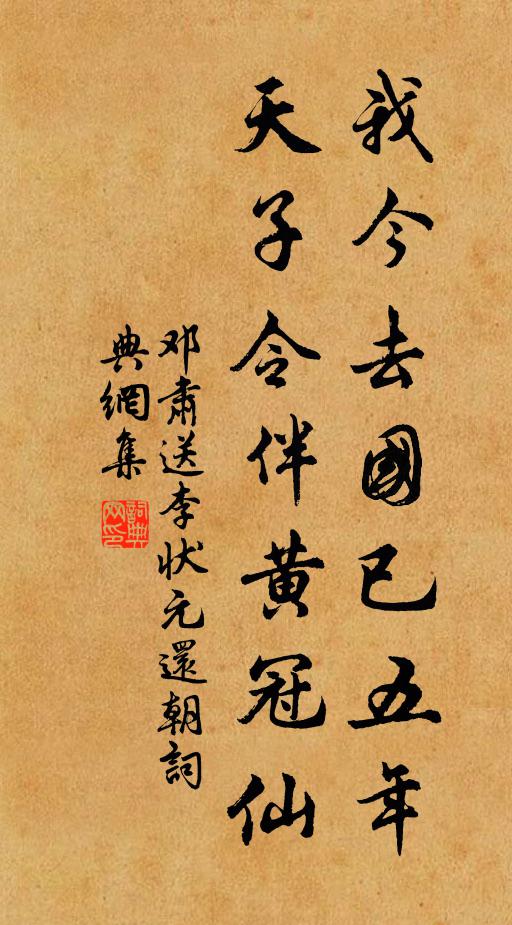 我今去國已五年
天子令伴黄冠仙
邓肅送李状元還朝詞
典網集
詞典網印